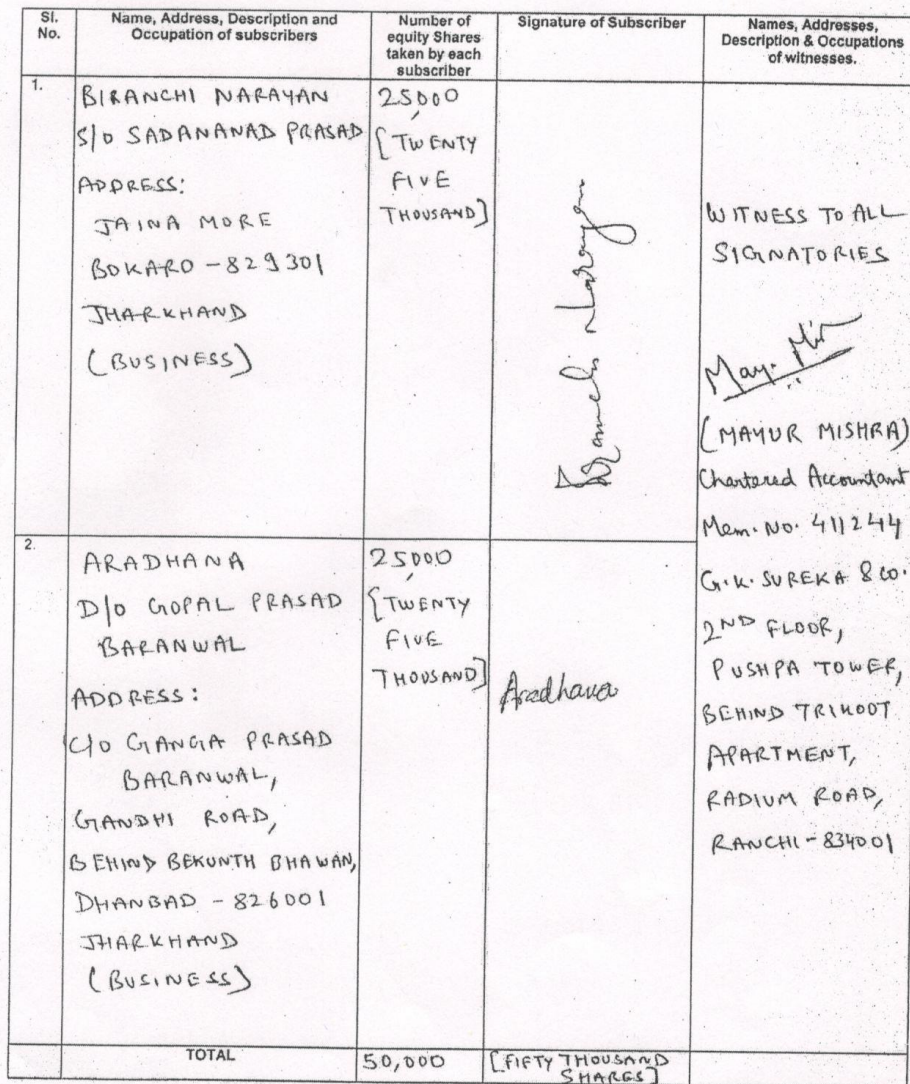 Sl. No.
Name, Address, Description and Occupation of subscribers
Number of equity Shares taken by each subscriber
Signature of Subscriber
Names, Addresses, Description & Occupations of witnesses.
1.
BIRANCHI NARAYAN
S/O SADANANAD PRASAD
ADDRESS:
JAINA MORE
BOKARO - 829301
JHARKHAND
(BUSINESS)
25,000
[TWENTY
FIVE
THOUSAND]
Biranchi Narayan
WITNESS TO ALL
SIGNATORIES
(MAYUR MISHRA)
Chartered Accountant
Mem. No. 411244
G.K. SUREKA & CO.
2ND FLOOR,
PUSHPA TOWER,
BEHIND TRIKOOT
APARTMENT,
RADIUM ROAD,
RANCHI - 834001
2.
ARADHANA
D/O GOPAL PRASAD
BARANWAL
ADDRESS:
C/O GANGA PRASAD
BARANWAL,
GANDHI ROAD,
BEHIND BEKUNTH BHAWAN,
DHANBAD - 826001
JHARKHAND
(BUSINESS)
25,000
[TWENTY
FIVE
THOUSAND]
Aradhana
TOTAL
50,000
[FIFTY THOUSAND
SHARES]